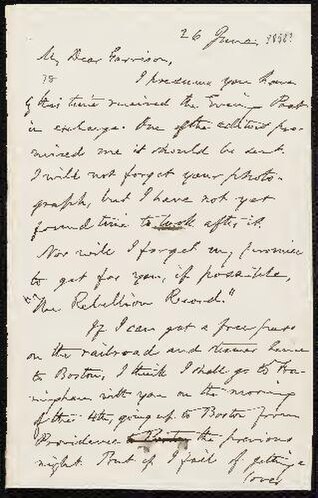 26 June, [1858?]
My Dear Garrison,
I presume you have
by this time received the Evening Post
in exchange. One of the editors pro-
mised me it should be sent.
I will not forget your photo-
graph, but I have not yet
found time to look after it.
Nor will I forget my promise
to get for you, if possible,
"The Rebellion Record."
If I can get a free pass
on the railroad and steamer hence
to Boston, I think I shall go to Fra-
mingham with you on the morning
of the 4th, going up to Boston from
Providence the previous
night. But if I fail of getting a
(over)